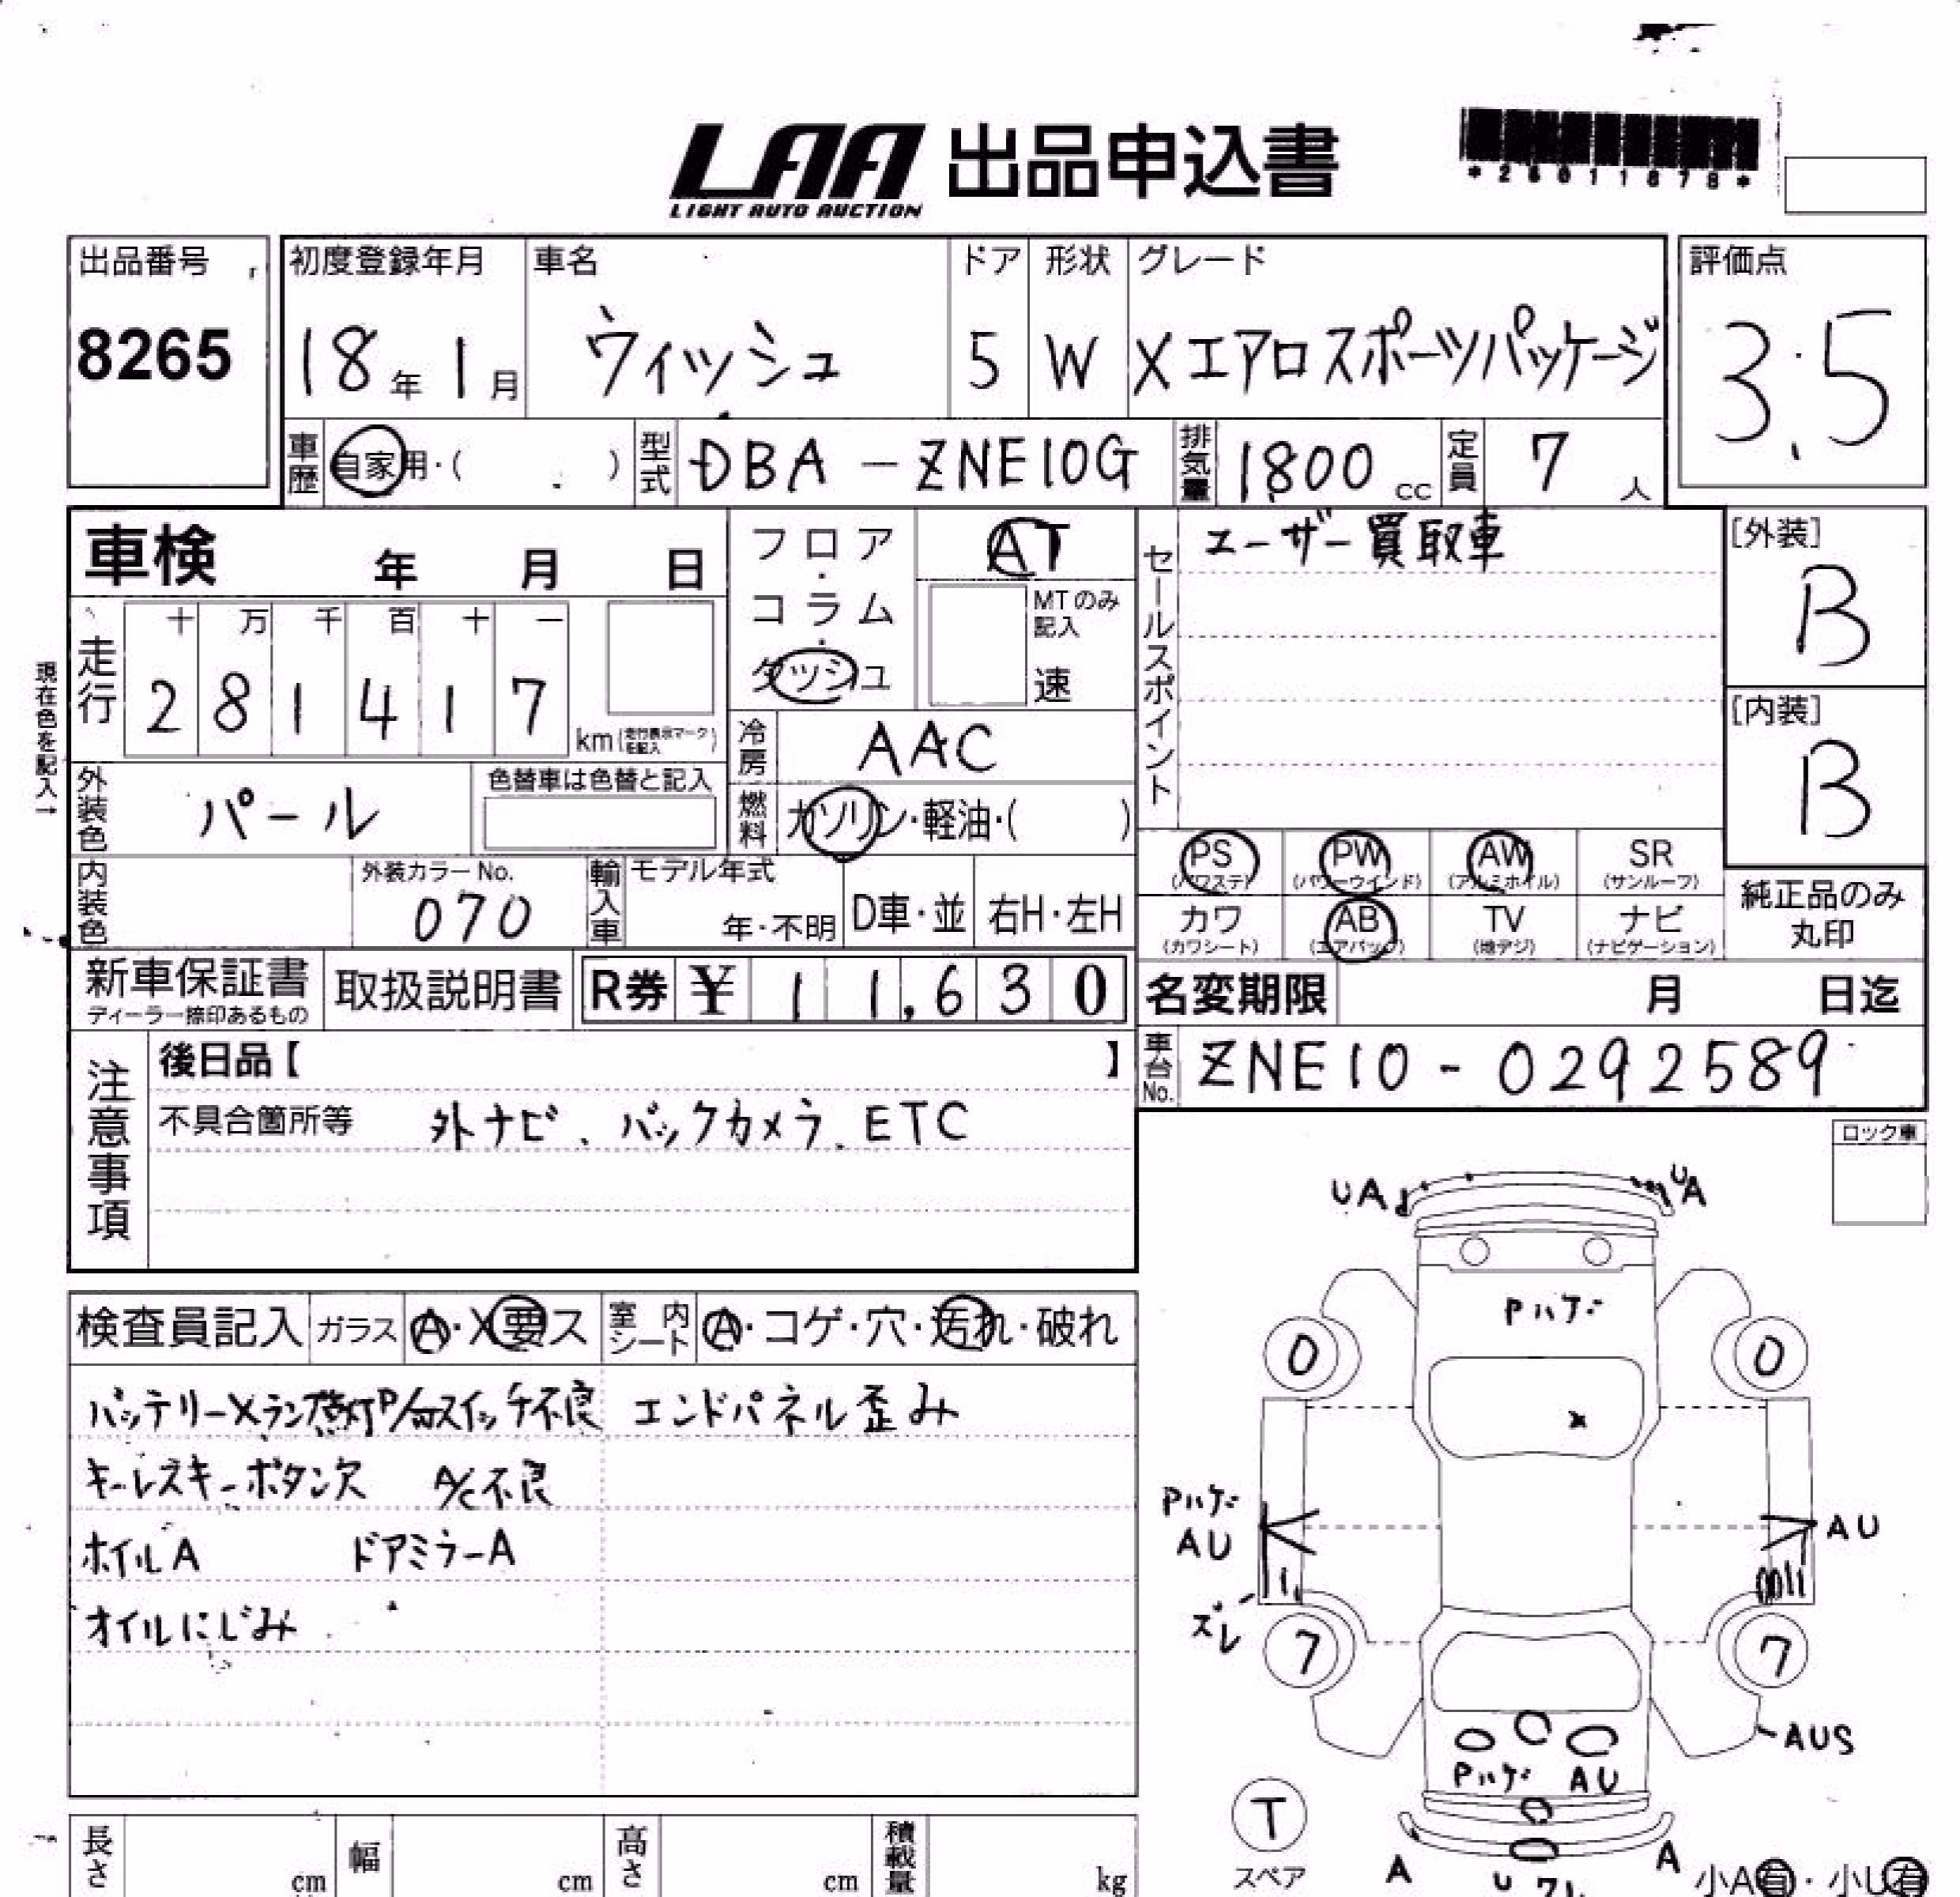 LAA 出品申込書
LIGHT AUTO AUCTION
出品番号 初度登録年月 車名 ドア 形状 グレード 評価点
8265 18年 1月 ウィッシュ 5 W Xエアロスポーツパッケージ 3.5
車歴 自家用・( ) 型式 DBA-ZNE10G 排気量 1800cc 定員 7人
車検 年 月 日 フロア・コラム・ダッシュ AT セールスポイント ユーザー買取車 [外装]
B
MTのみ記入 速
走行 十 万 千 百 十 一
2 8 1 4 1 7 km(走行表示マークを記入)
現在色を記入→
冷房 AAC [内装]
B
外装色 パール 色替車は色替と記入 燃料 ガソリン・軽油・( )
PS (パワステ) PW (パワーウインド) AW (アルミホイル) SR (サンルーフ)
内装色 外装カラーNo. 070 輸入車 モデル年式 年・不明 D車・並 右H・左H
カワ (カワシート) AB (エアバッグ) TV (地デジ) ナビ (ナビゲーション) 純正品のみ丸印
新車保証書 ディーラー捺印あるもの 取扱説明書 R券 ¥ 11,630 名変期限 月 日迄
注意事項 後日品【 】 車台No. ZNE10-0292589
不具合箇所等 外ナビ、バックカメラ、ETC
ロック車
UA UA
検査員記入 ガラス A・X要ス 室内シート A・コゲ・穴・汚れ・破れ
Pハゲ
0 0
バッテリーX スイッチ不良 エンドパネル歪み
キーレスキーボタン欠 A/C不良
Pハゲ
AU AU
ホイルA ドアミラーA
ズレ
オイルにじみ
7 7
AUS
Pハゲ AU
T
スペア
A U A
小A有・小U有
長さ cm 幅 cm 高さ cm 積載量 kg